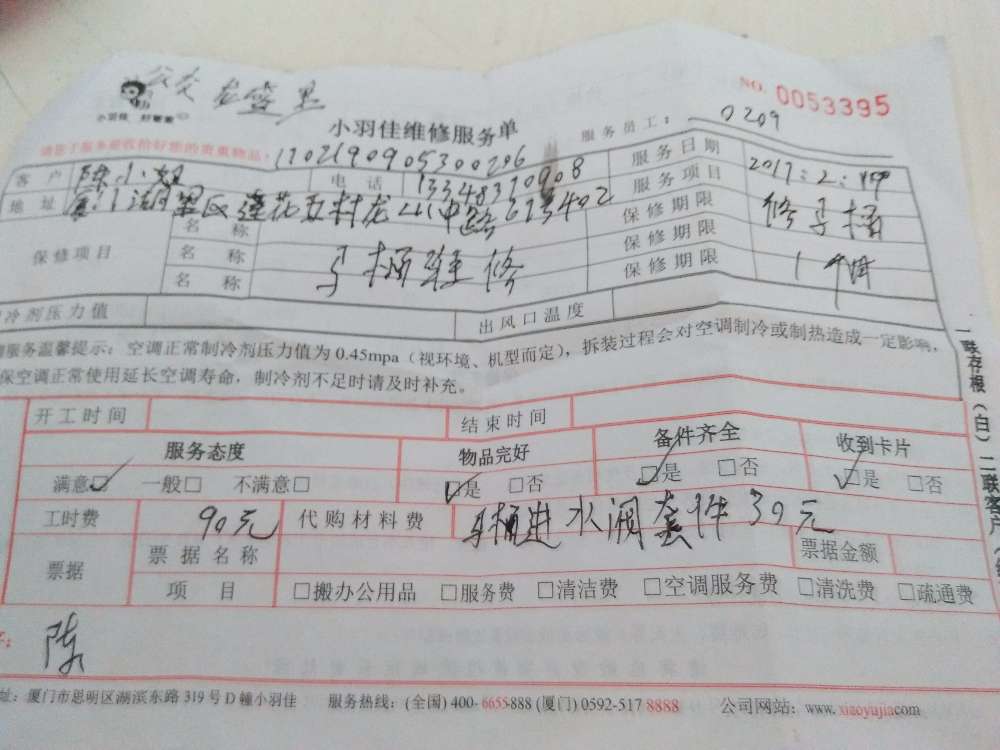 公交 龙盛里
NO. 0053395
小羽佳 好管家
小羽佳维修服务单
服务员工: 0209
请您了服务前收拾好您的贵重物品: 1702190905300206
客户 陈小姐 电话 13348310908 服务日期 2017:2:
地址 莲花五村龙山中路 402 服务项目 修马桶
保修项目 名称 保修期限
名称 马桶维修 保修期限 1个月
名称 保修期限
冷剂压力值 出风口温度
服务温馨提示: 空调正常制冷剂压力值为0.45mpa(视环境、机型而定), 拆装过程会对空调制冷或制热造成一定影响,
保空调正常使用延长空调寿命, 制冷剂不足时请及时补充。
开工时间 结束时间
服务态度 物品完好 备件齐全 收到卡片
满意☑ 一般□ 不满意□ ☑是 □否 ☑是 □否 ☑是 □否
工时费 90元 代购材料费 马桶进水阀套件30元
票据 票据名称 票据金额
项目 □搬办公用品 □服务费 □清洁费 □空调服务费 □清洗费 □疏通费
陈
址: 厦门市思明区湖滨东路319号D幢小羽佳 服务热线: (全国) 400-6655888 (厦门) 0592-5178888 公司网站: www.xiaoyujia.com
一联存根(白) 二联客户(